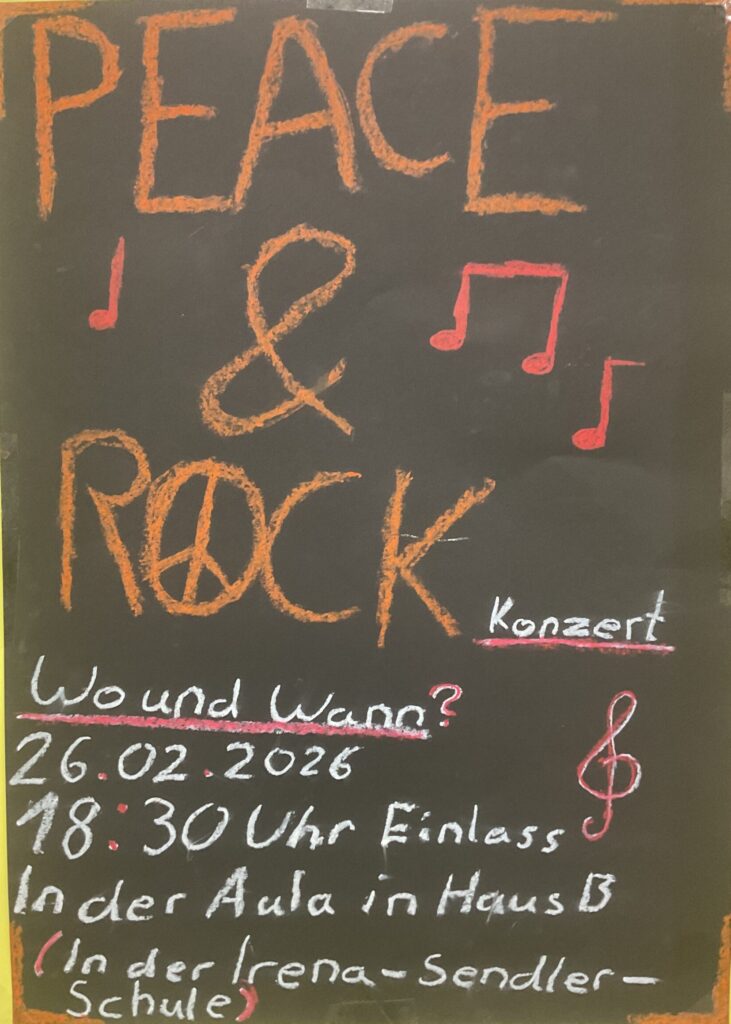 PEACE
&
ROCK
Konzert
Wo und Wann?
26.02.2026
18:30 Uhr Einlass
In der Aula in Haus B
(In der Irena-Sendler-
Schule)